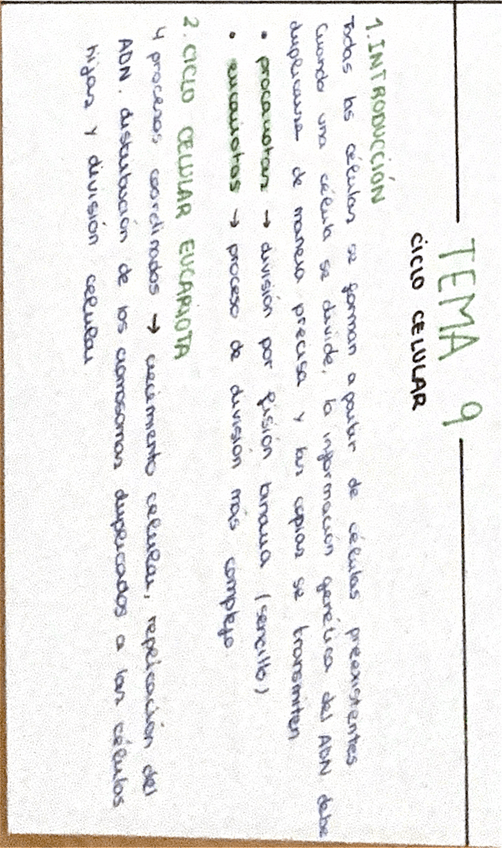 TEMA 9
CICLO CELULAR
1. INTRODUCCIÓN
Todas las células se forman a partir de células preexistentes.
Cuando una célula se divide, la información genética del ADN debe
duplicarse de manera precisa y las copias se transmiten
• procariotas → división por fisión binaria (sencillo)
• eucariotas → proceso de división más complejo
2. CICLO CELULAR EUCARIOTA
4 procesos coordinados → crecimiento celular, replicación del
ADN, distribución de los cromosomas duplicados a las células
hijas y división celular